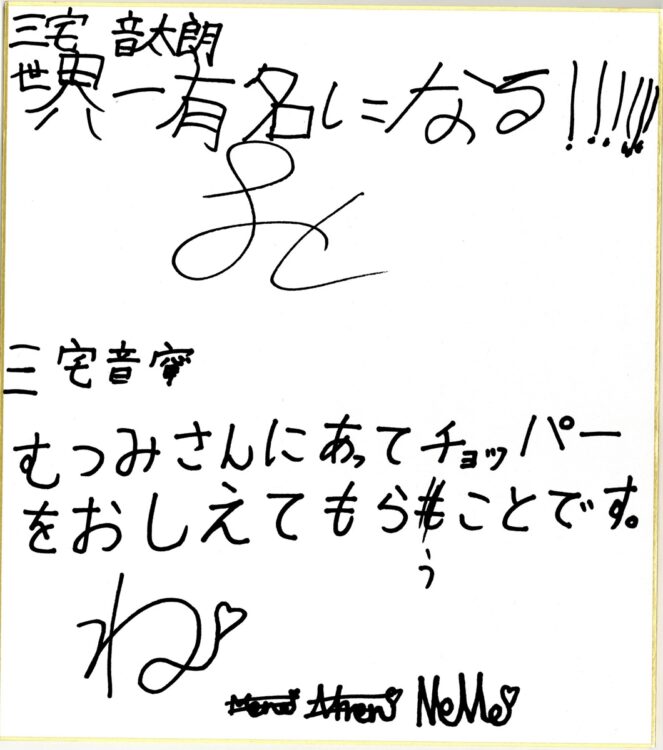 三宅 音太朗
世界一有名になる!!!!!!!
三宅音寧
むつみさんにあってチョッパー
をおしえてもらうことです。
ね♡
NeMe♡